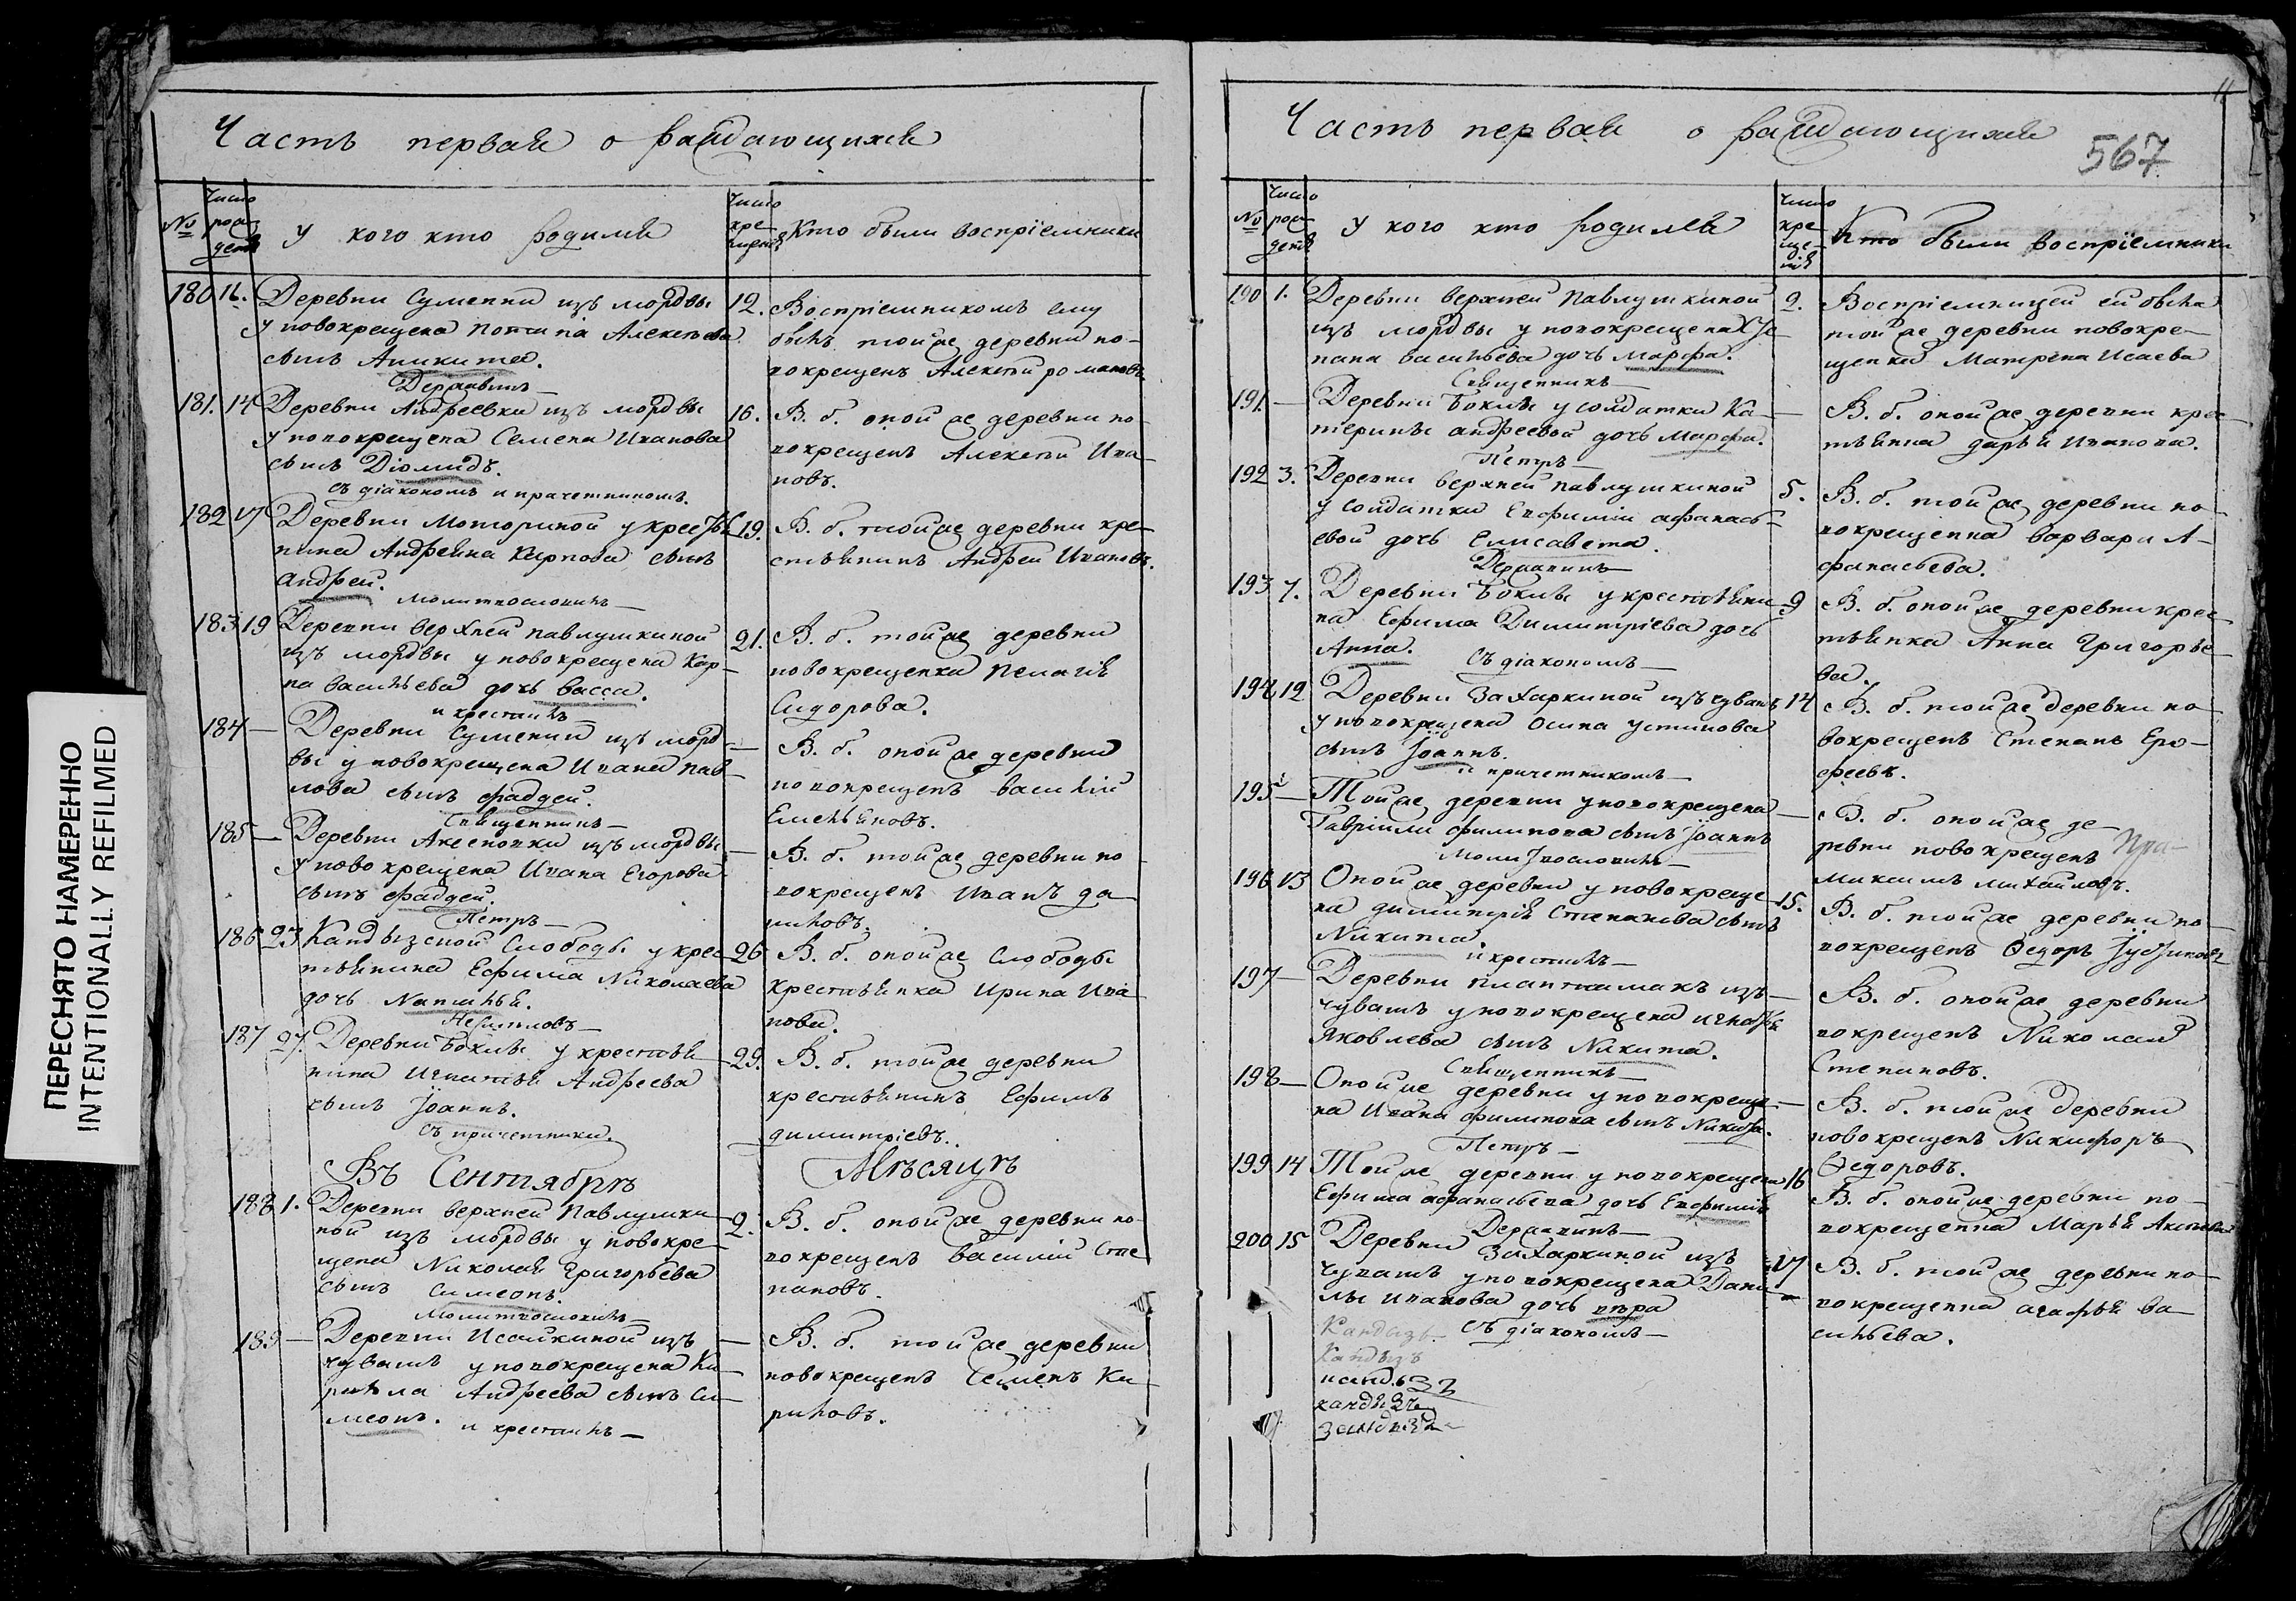 ПЕРЕСНЯТО НАМЕРЕННО
INTENTIONALLY REFILMED
Часть первая о раждающихся
№
Число рождетв
У кого кто родился
Число крещенія
Кто были воспріемники
180
Деревни Сумекки изъ мордвы
у новокрещена Алексѣева
сынъ Аникита.
Державинъ
12. Воспріемникомъ ему
былъ той же деревни но-
вокрещенъ Алексѣй Романовъ
181. 14 Деревни Андреевки изъ мордвы
у новокрещена Семена Иванова
сынъ Діомидъ.
съ діакономъ и причетникомъ.
16. В. б. оной же деревни но-
вокрещенъ Алексѣй Ива-
новъ.
182 17 Деревни Моториной у крестья
нина Андреяна Карпова сынъ
Андрей.
Молитвословилъ
19. В. б. той же деревни кре-
стьянинъ Андрей Ивановъ.
183 19 Деревни верхней Павлушкиной
изъ мордвы у новокрещена Кар-
па Васильева дочь Васса.
и крестилъ
21. В. б. той же деревни
новокрещенка Пелагія
Сидорова.
184 — Деревни Сумекки изъ морд-
вы у новокрещена Ивана Пав-
лова сынъ Фаддей.
Священникъ
— В. б. оной же деревни
новокрещенъ Василій
Емельяновъ.
185 — Деревни Аксеновки изъ мордвы
у новокрещена Ивана Егорова
сынъ Фаддей.
Петръ
— В. б. той же деревни но-
вокрещенъ Иванъ Да
ниловъ.
186 23 Кандызской Слободы у крес-
тьянина Ефима Николаева
дочь Наталья.
26 В. б. оной же Слободы
крестьянка Ирина Ива
нова.
187 27. Деревни Боклы у крестья
нина Игнатья Андреева
сынъ Іоаннъ.
съ причетники.
29. В. б. той же деревни
крестьянинъ Ефимъ
Димитріевъ.
Въ Сентябрѣ Мѣсяцѣ
188 1. Деревни верхней Павлушки
ной изъ мордвы у новокре-
щена Николая Григорьева
сынъ Симеонъ.
Молитвословилъ
2. В. б. оной же деревни но-
вокрещенъ Василій Сте
пановъ.
189 — Деревни Исайкиной изъ
чувашъ у новокрещена Ки-
рилла Андреева сынъ Си-
меонъ.
и крестилъ
— В. б. той же деревни
новокрещенъ Семенъ Ки
риловъ.
Часть первая о раждающихся
567
№
Число рождетв
У кого кто родился
Число крещенія
Кто были воспріемники
190 1. Деревни верхней Павлушкиной
изъ мордвы у новокрещена Сте
пана Васильева дочь Марфа.
Священникъ
2. Воспріемницей ей была
той же деревни новокре-
щенка Матрена Исаева
191. — Деревни Боклы у солдатки Ка-
терины Андреевой дочь Марфа.
Петръ
— В. б. оной же деревни крес
тьянка Дарья Иванова.
192 3. Деревни верхней Павлушкиной
у солдатки Евфиміи Афанась-
евой дочь Елисавета.
Державинъ
5. В. б. той же деревни но-
вокрещенка Варвара А-
фанасьева.
193 7. Деревни Боклы у крестьяни
на Ефима Димитріева дочь
Анна.
съ діакономъ
9 В. б. оной же деревни крес
тьянка Анна Григорье-
ва.
194 12 Деревни Захаркиной изъ чувашъ
у новокрещена Осипа Устинова
сынъ Іоаннъ.
и причетникомъ
14 В. б. той же деревни но-
вокрещенъ Степанъ Еро-
феевъ.
195 — Той же деревни у новокрещена
Гавріила Филипова сынъ Іоаннъ
Молитвословилъ
— В. б. оной же де-
ревни новокрещенъ
Максимъ Михайловъ.
196 13 Оной же деревни у новокреще
на Димитрія Степанова сынъ
Никита.
и крестилъ
15. В. б. той же деревни но-
вокрещенъ Ѳедоръ
197 — Деревни изъ
чувашъ у новокрещена Игнатья
Яковлева сынъ Никита.
Священникъ
— В. б. оной же деревни
вокрещенъ Николай
Степановъ.
198 — Оной же деревни у новокреще
на Ивана Филипова сынъ Никита.
Петръ
— В. б. той же деревни
новокрещенъ Никифоръ
Ѳедоровъ.
199 14 Той же деревни у новокрещена
Ефима Афанасьева дочь Евфимія
Державинъ
16 В. б. оной же деревни но-
вокрещенка Марья Алексѣева
200 15 Деревни Захаркиной изъ
чувашъ у новокрещена Дани-
лы Иванова дочь Вѣра
съ діакономъ
17 В. б. той же деревни но-
вокрещенка Агафья Ва
сильева.
Кандызъ
Кандызъ